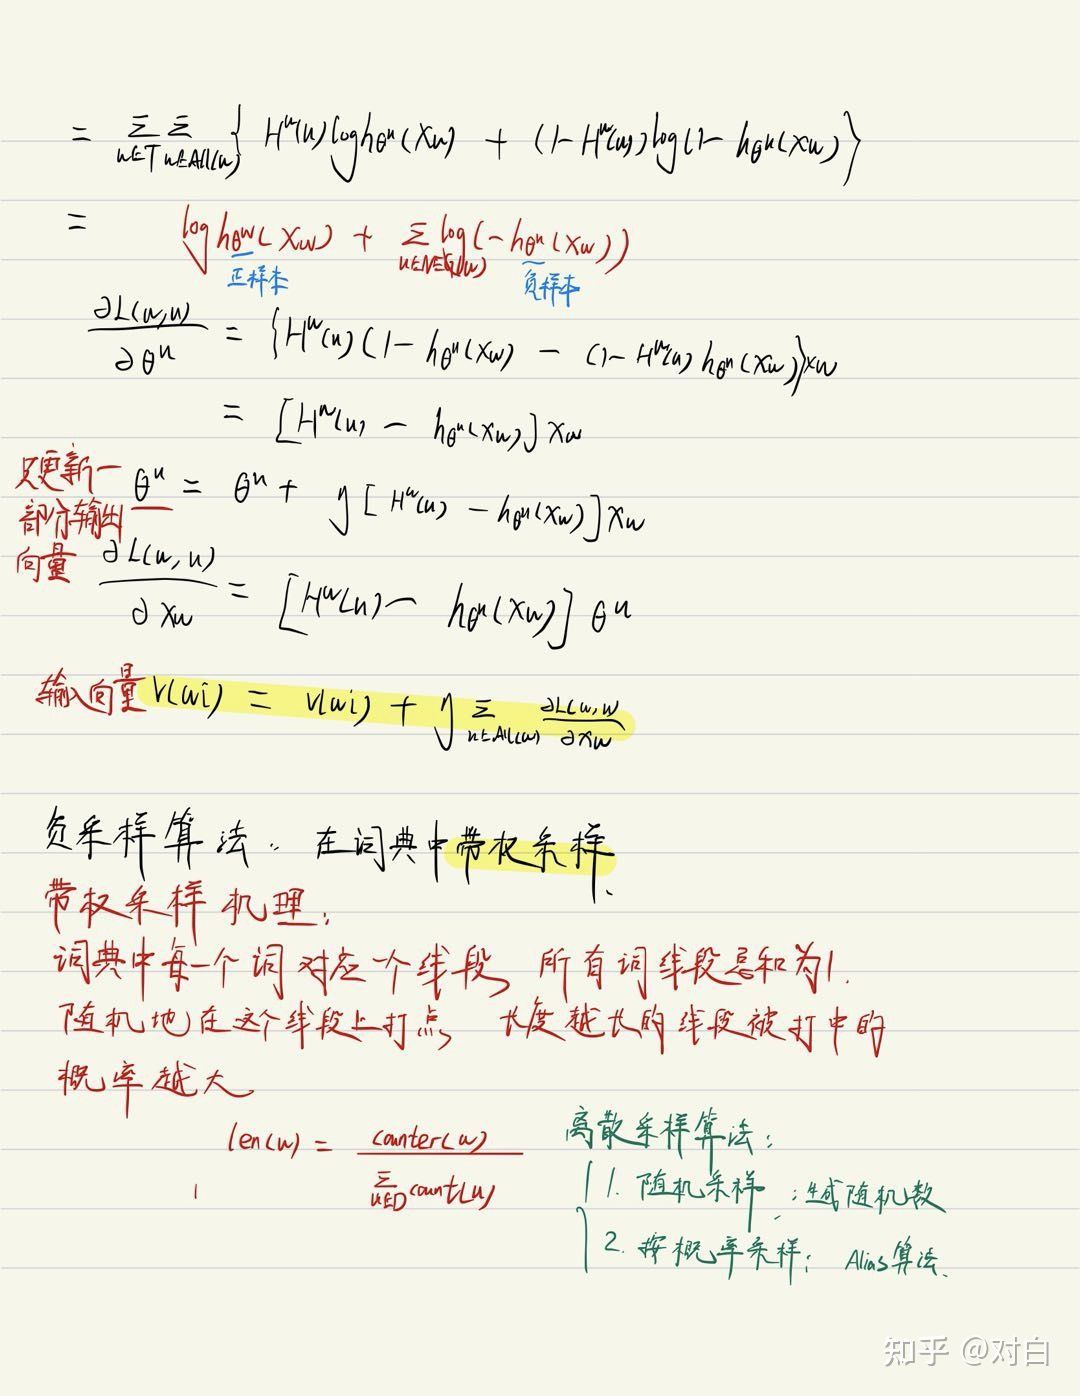 = Σ_{w∈T} Σ_{u∈All(w)} { H^w(u) log h_{θ^u}(X_w) + (1-H^w(u)) log(1- h_{θ^u}(X_w) }
= log h_{θ^w}(X_w) + Σ_{u∈NEG(w)} log(-h_{θ^u}(X_w))
正样本 负样本
∂L(w,u)/∂θ^u = {H^w(u)(1-h_{θ^u}(X_w) - (1-H^w(u) h_{θ^u}(X_w)} x_w
= [H^w(u) - h_{θ^u}(X_w)] x_w
只更新一部分输出向量
θ^u = θ^u + η[H^w(u) - h_{θ^u}(X_w)] x_w
∂L(w,u)/∂X_w = [H^w(u) - h_{θ^u}(X_w)] θ^u
输入向量 V(wi) = V(wi) + η Σ_{u∈All(w)} ∂L(w,u)/∂x_w
负采样算法: 在词典中带权采样.
带权采样机理:
词典中每一个词对应一个线段, 所有词线段总和为1.
随机地在这个线段上打点, 长度越长的线段被打中的
概率越大
len(w) = counter(w)/Σ_{u∈D} count(u)
离散采样算法:
1. 随机采样: 生成随机数
2. 按概率采样: Alias算法.
知乎 @对白